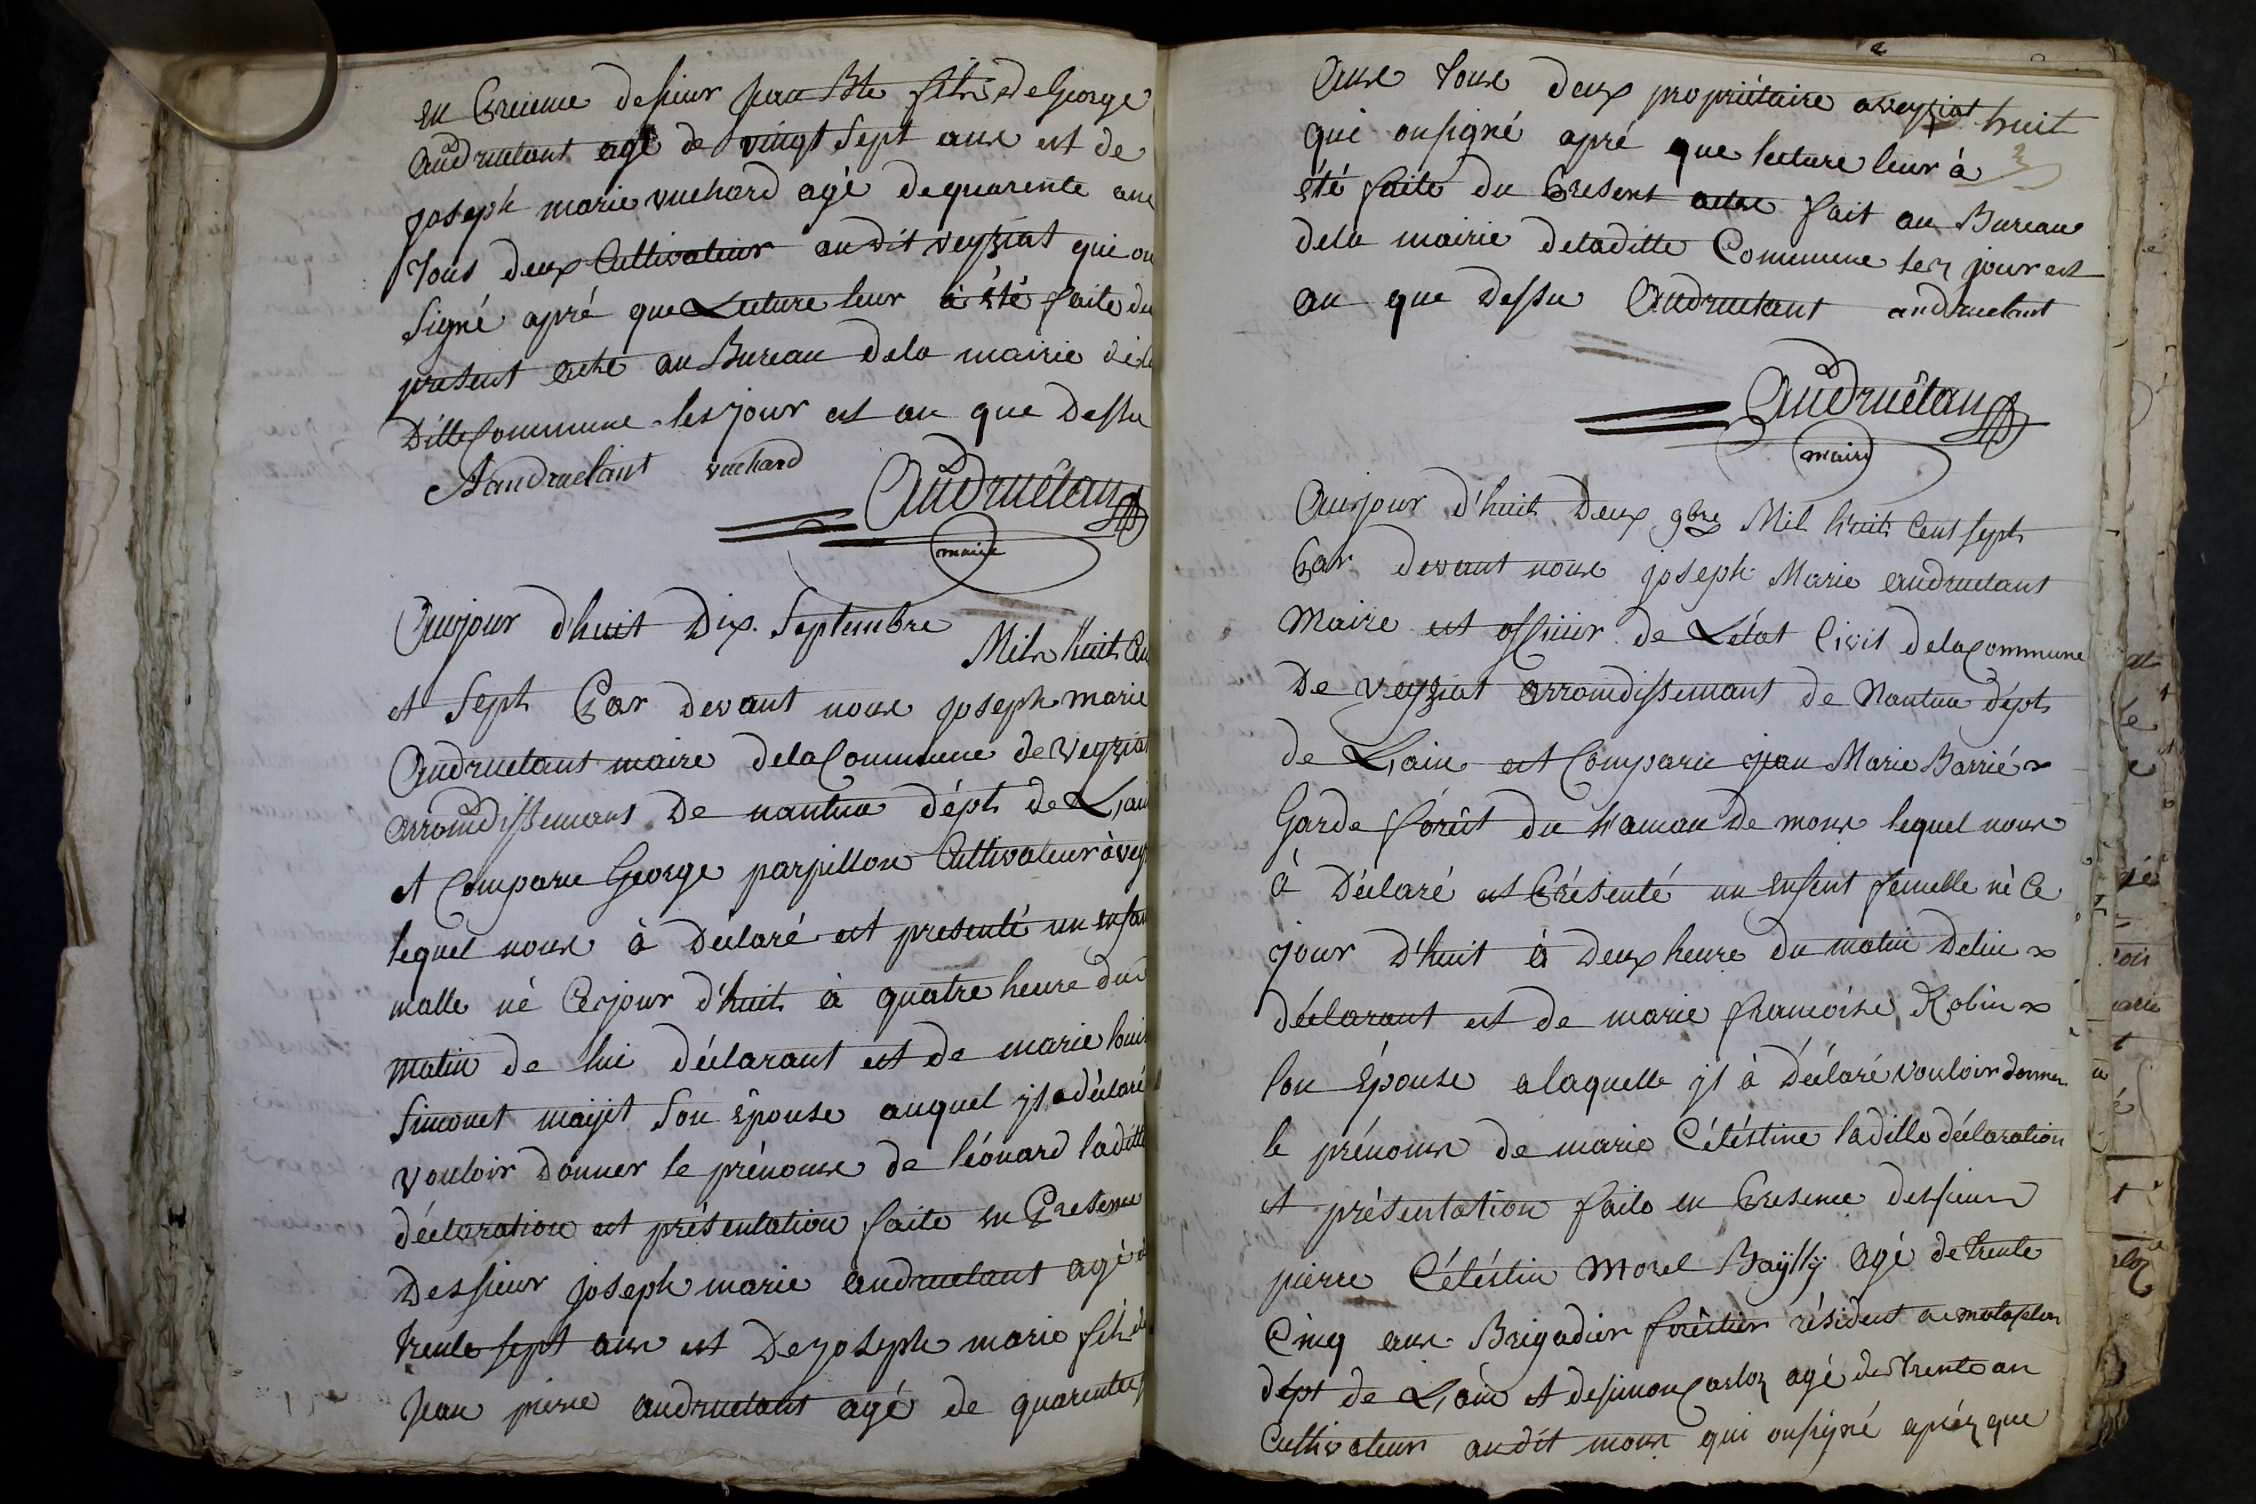 en Presence desieur jean Bte fils de George
Andruetant agé de vingt Sept ans est de
joseph marie vuchard agé de quarente ans
Tous deux Cultivateur au dit veyziat qui on
Signé apré que Lecture leur à été faite du
present acte au Bureau dela mairie de la
Ditte Commune les jour est an que Dessu
Aandruetant vuchard
Andruétan
maire
Aujour d'huit Dix Septembre Mil huit Cen
et Sept Par devant nous joseph marie
Andruetant maire dela Commune de veyziat
arrondissemant De nantua dépt de L'ain
et Comparu George parpillon Cultivateur à vey
lequel nous à déclaré est presenté un enfan
malle né Ce jour d'huit à quatre heure du
matin de lui déclarant est de marie louise
Simonet maijet Son Épouse auquel yl a déclaré
vouloir Donner le prénoms de léonard laditte
déclaration est présentation faite en Presence
Dessieur joseph marie andruetant agé de
trente sept ans est De joseph marie fils de
jean pierre andruetant agé de quarente
Ans Tous deux propriétaire a veyziat huit
qui onsigné apré que lecture leur à
été faite du Present acte fait au Bureau
dela mairie deladitte Commune les jour est
an que Dessu Andruetant andruetant
Andruétan
maire
Aujour d'huit Deux 9bre Mil huit Cent sept
Par devant nous joseph Marie andruetant
Maire est officier de L'état Civil dela Commune
De veyziat arrondissemant de Nantua dépt
de L'ain est Comparu jean Marie Barrié
Garde forêt du hamau De mons lequel nous
à Déclaré est Présenté un enfent femelle né Ce
jour d'huit à Deux heure du matin Delui
déclarant est de marie francoise Robin
son Épouse a laquelle yl à Déclaré vouloir donner
le prénoms de marie Céléstine laditte déclaration
et présentation faite en Presence dessieur
pierre Céléstin Morel Baÿllÿ agé de trente
Cinq ans Brigadier forêstier résident a matafelon
dépt de L'ain et desimon Carloz agé de trente an
Cultivateur audit mons qui onsigné apréz que